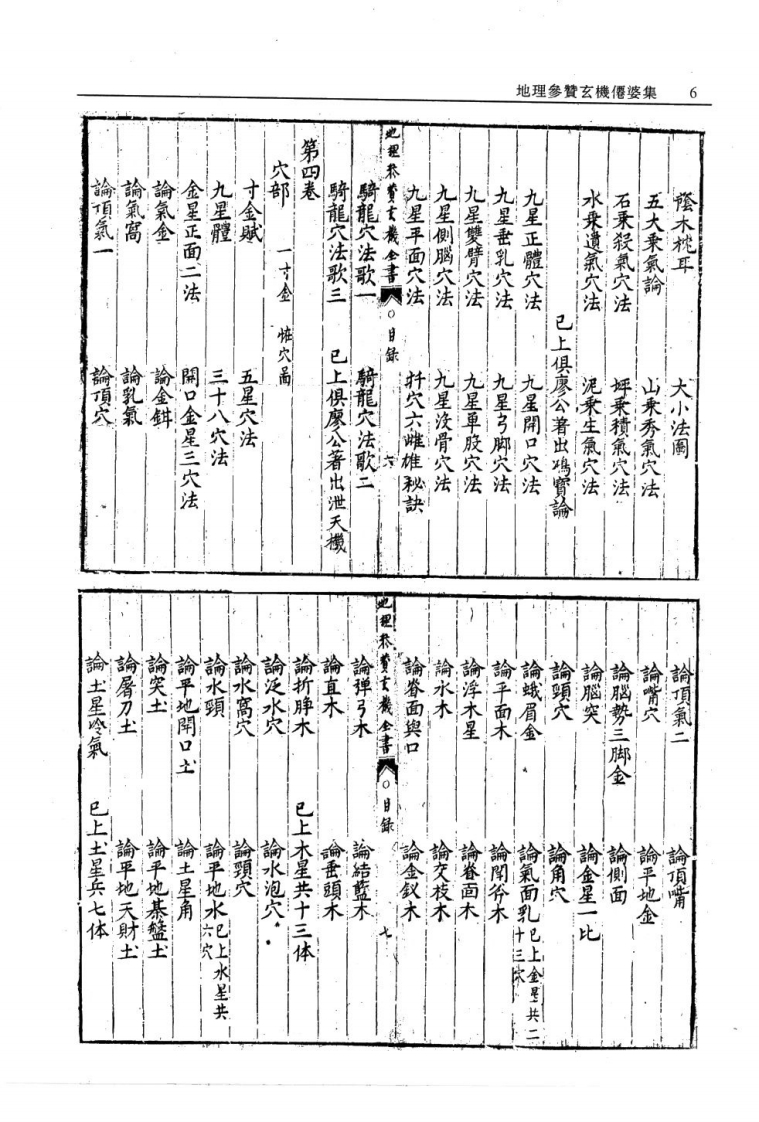 地理參贊玄機僊婆集 6
蔭木枕耳 大小法圖
五大乘氣論 山乘秀氣穴法
石乘殺氣穴法 坪乘積氣穴法
水乘遺氣穴法 泥乘生氣穴法
已上俱廖公著出 寶論
九星正體穴法 九星開口穴法
九星垂乳穴法 九星弓脚穴法
九星雙臂穴法 九星單股穴法
九星側腦穴法 九星没骨穴法
九星平面穴法 扦穴六雌雄秘訣
地理參贊玄機全書 ○目録 六
騎龍穴法歌一 騎龍穴法歌二
騎龍穴法歌三 已上俱廖公著出泄天機
第四卷
穴部 一寸金 怪穴啚
寸金賦 五星穴法
九星體 三十八穴法
金星正面二法 開口金星三穴法
論氣金 論金鉺
論氣窩 論乳氣
論頂氣一 論頂穴
論頂氣二 論頂嘴
論嘴穴 論平地金
論腦勢三脚金 論側面
論腦突 論金星一比
論頸穴 論角穴
論蛾眉金 論氣面乳 已上金星共二十三穴
論平面木 論開谷木
論浮木星 論眷面木
論水木 論交枝木
論眷面與口 論金釵木
地理參贊玄機全書 ○目録 七
論弹弓木 論結藍木
論直木 論垂頭木
論折脖木 已上木星共十三体
論泛水穴 論水泡穴
論水窩穴 論頸穴
論水頸 論平地水 已上水星共六穴
論平地開口土 論土星角
論突土 論平地棊盤土
論屠刀土 論平地天財土
論土星冷氣 已上土星兵七体